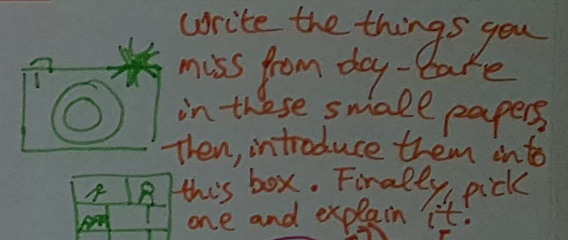 Write the things you
miss from day-care
in these small papers,
Then, introduce them into
this box. Finally, pick
one and explain it.